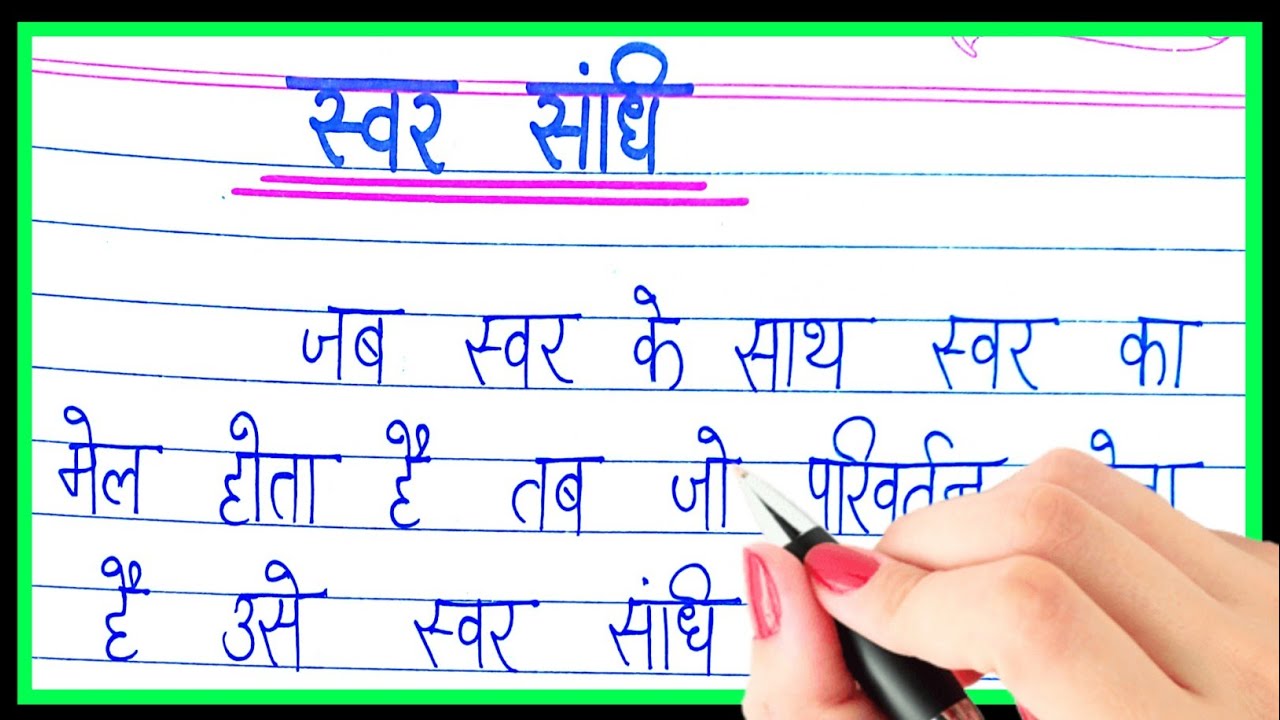 स्वर संधि
जब स्वर के साथ स्वर का
मेल होता है तब जो परिवर्तन
है उसे स्वर संधि